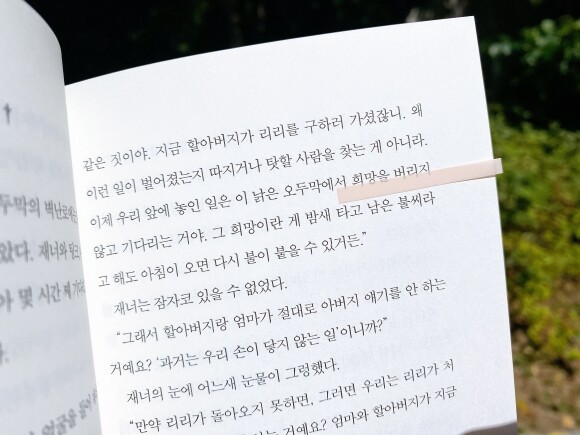 두막의 벽난로에
왔다. 재너와 팀은
몇 시간 째
같은 짓이야. 지금 할아버지가 리리를 구하러 가셨잖니. 왜
이런 일이 벌어졌는지 따지거나 탓할 사람을 찾는 게 아니라.
이제 우리 앞에 놓인 일은 이 낡은 오두막에서 희망을 버리지
않고 기다리는 거야. 그 희망이란 게 밤새 타고 남은 불씨라
고 해도 아침이 오면 다시 불이 붙을 수 있거든.”
재너는 잠자코 있을 수 없었다.
“그래서 할아버지랑 엄마가 절대로 아버지 얘기를 안 하는
거예요? ‘과거는 우리 손이 닿지 않는 일’이니까?”
재너의 눈에 어느새 눈물이 그렁했다.
“만약 리리가 돌아오지 못하면, 그러면 우리는 리리가 처
거예요? 엄마와 할아버지가 지금